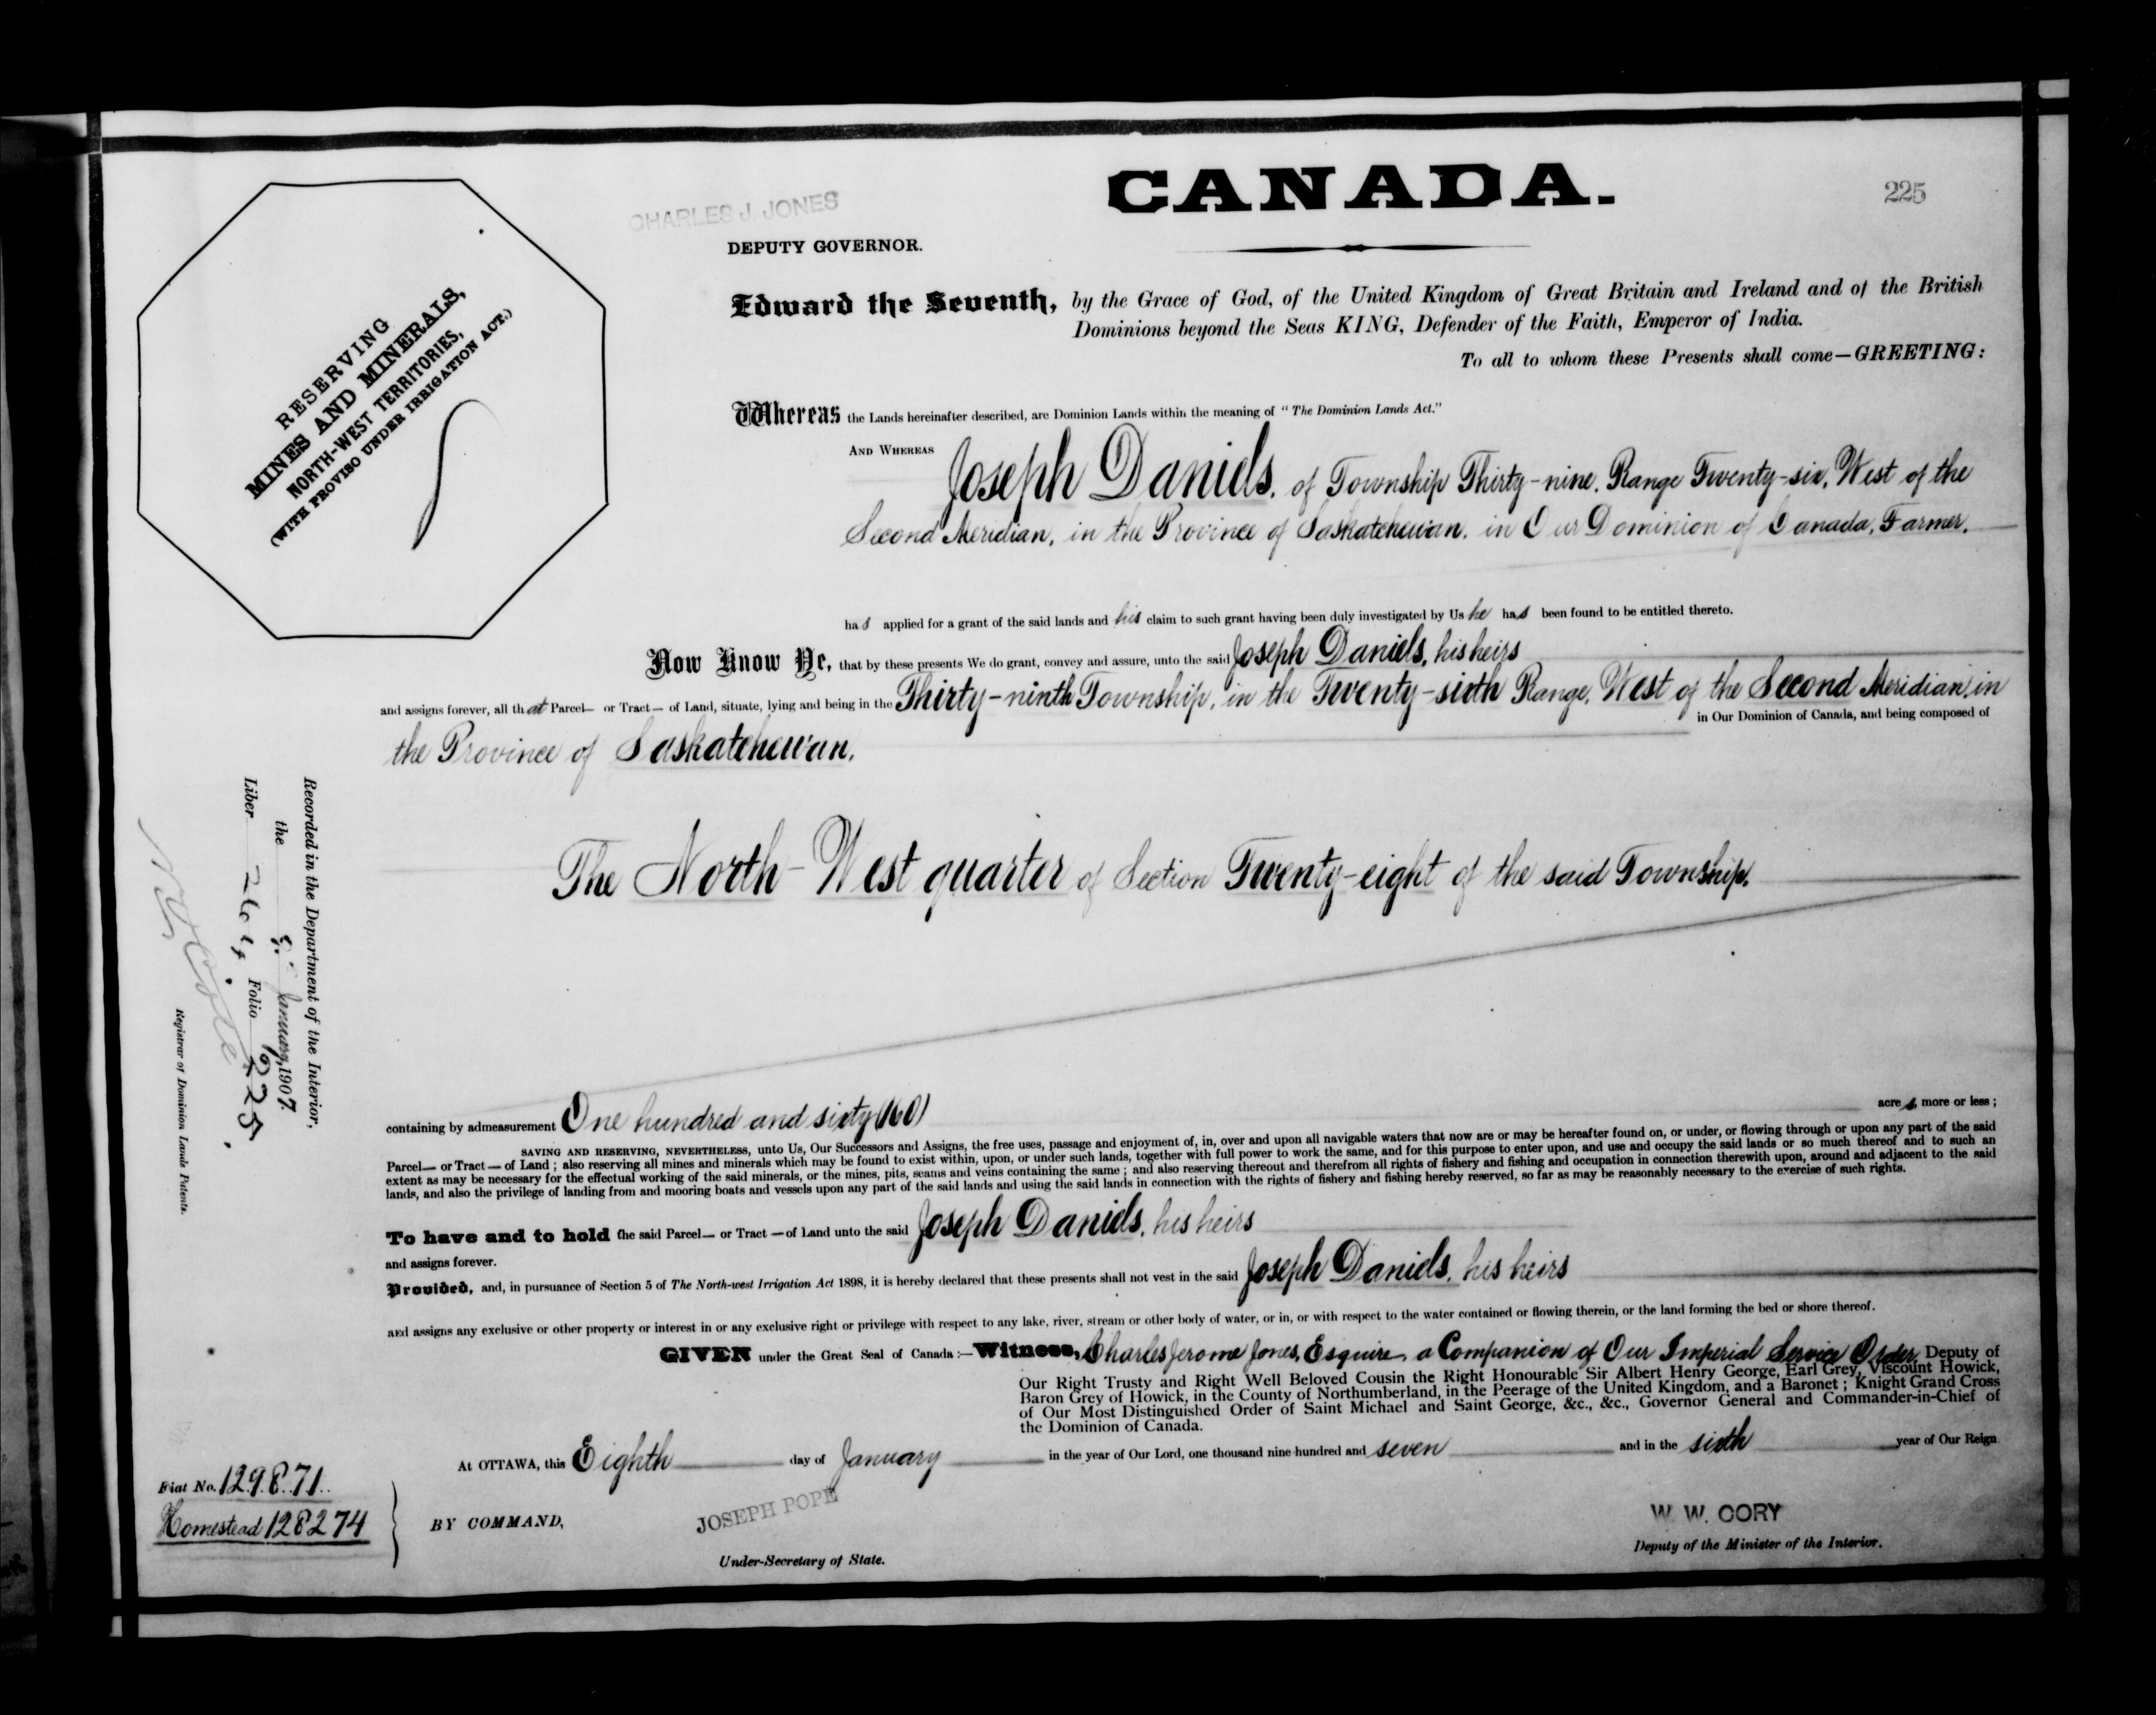 CANADA.
225
CHARLES J. JONES
DEPUTY GOVERNOR.
RESERVING
MINES AND MINERALS,
NORTH-WEST TERRITORIES,
(WITH PROVISO UNDER IRRIGATION ACT.)
Edward the Seventh, by the Grace of God, of the United Kingdom of Great Britain and Ireland and of the British
Dominions beyond the Seas KING, Defender of the Faith, Emperor of India.
To all to whom these Presents shall come—GREETING:
Whereas the Lands hereinafter described, are Dominion Lands within the meaning of "The Dominion Lands Act."
AND WHEREAS Joseph Daniels, of Township Thirty-nine, Range Twenty-six, West of the
Second Meridian, in the Province of Saskatchewan, in Our Dominion of Canada, Farmer,
has applied for a grant of the said lands and his claim to such grant having been duly investigated by Us he has been found to be entitled thereto.
Now Know Ye, that by these presents We do grant, convey and assure, unto the said Joseph Daniels, his heirs
and assigns forever, all that Parcel— or Tract— of Land, situate, lying and being in the Thirty-ninth Township, in the Twenty-sixth Range, West of the Second Meridian, in
the Province of Saskatchewan, in Our Dominion of Canada, and being composed of
The North-West quarter of Section Twenty-eight of the said Township,
containing by admeasurement One hundred and sixty (160) acres, more or less;
SAVING AND RESERVING, NEVERTHELESS, unto Us, Our Successors and Assigns, the free uses, passage and enjoyment of, in, over and upon all navigable waters that now are or may be hereafter found on, or under, or flowing through or upon any part of the said
Parcel— or Tract— of Land; also reserving all mines and minerals which may be found to exist within, upon, or under such lands, together with full power to work the same, and for this purpose to enter upon, and use and occupy the said lands or so much thereof and to such an
extent as may be necessary for the effectual working of the said minerals, or the mines, pits, seams and veins containing the same; and also reserving thereout and therefrom all rights of fishery and fishing and occupation in connection therewith upon, around and adjacent to the said
lands, and also the privilege of landing from and mooring boats and vessels upon any part of the said lands and using the said lands in connection with the rights of fishery and fishing hereby reserved, so far as may be reasonably necessary to the exercise of such rights.
To have and to hold the said Parcel— or Tract— of Land unto the said Joseph Daniels, his heirs
and assigns forever.
Provided, and, in pursuance of Section 5 of The North-west Irrigation Act 1898, it is hereby declared that these presents shall not vest in the said Joseph Daniels, his heirs
and assigns any exclusive or other property or interest in or any exclusive right or privilege with respect to any lake, river, stream or other body of water, or in, or with respect to the water contained or flowing therein, or the land forming the bed or shore thereof.
GIVEN under the Great Seal of Canada:—Witness, Charles Jerome Jones, Esquire, a Companion of Our Imperial Service Order, Deputy of
Our Right Trusty and Right Well Beloved Cousin the Right Honourable Sir Albert Henry George, Earl Grey, Viscount Howick,
Baron Grey of Howick, in the County of Northumberland, in the Peerage of the United Kingdom, and a Baronet; Knight Grand Cross
of Our Most Distinguished Order of Saint Michael and Saint George, &c., &c., Governor General and Commander-in-Chief of
the Dominion of Canada.
At OTTAWA, this Eighth day of January in the year of Our Lord, one thousand nine hundred and seven and in the sixth year of Our Reign
BY COMMAND,
JOSEPH POPE
Under-Secretary of State.
W. W. CORY
Deputy of the Minister of the Interior.
Fiat No. 129871.
Homestead 128274
Recorded in the Department of the Interior,
the 8 January, 1907.
Liber Folio 225
Registrar of Dominion Lands Patents.